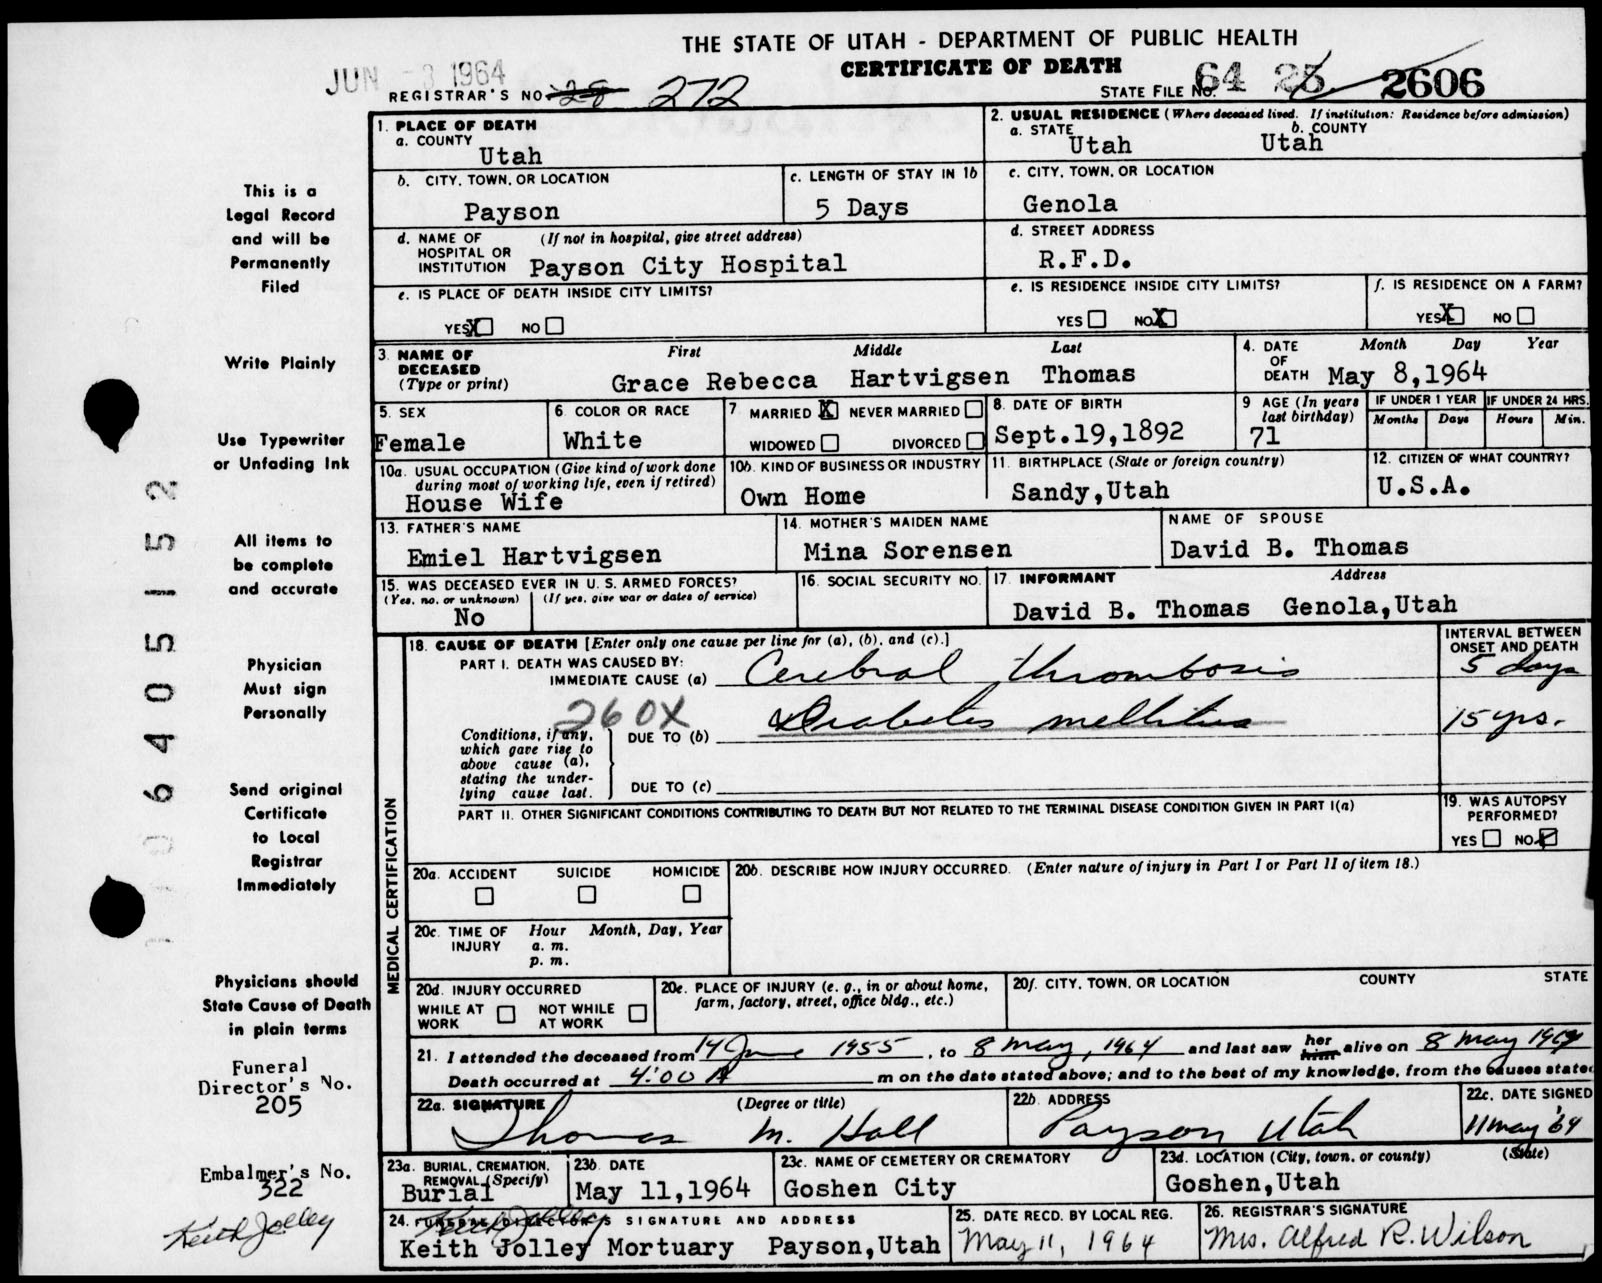 THE STATE OF UTAH - DEPARTMENT OF PUBLIC HEALTH
CERTIFICATE OF DEATH
JUN -3 1964
REGISTRAR'S NO. 28 272
STATE FILE No. 64 25 2606
1. PLACE OF DEATH
a. COUNTY
Utah
2. USUAL RESIDENCE (Where deceased lived. If institution: Residence before admission)
a. STATE b. COUNTY
Utah Utah
b. CITY, TOWN, OR LOCATION
Payson
c. LENGTH OF STAY IN 1b
5 Days
c. CITY, TOWN, OR LOCATION
Genola
d. NAME OF (If not in hospital, give street address)
HOSPITAL OR
INSTITUTION Payson City Hospital
d. STREET ADDRESS
R.F.D.
e. IS PLACE OF DEATH INSIDE CITY LIMITS?
YES X NO
e. IS RESIDENCE INSIDE CITY LIMITS?
YES NO X
f. IS RESIDENCE ON A FARM?
YES X NO
3. NAME OF DECEASED (Type or print)
First Middle Last
Grace Rebecca Hartvigsen Thomas
4. DATE OF DEATH Month Day Year
May 8,1964
5. SEX
Female
6. COLOR OR RACE
White
7. MARRIED X NEVER MARRIED
WIDOWED DIVORCED
8. DATE OF BIRTH
Sept.19,1892
9. AGE (In years last birthday)
71
IF UNDER 1 YEAR
Months Days
IF UNDER 24 HRS.
Hours Min.
10a. USUAL OCCUPATION (Give kind of work done
during most of working life, even if retired)
House Wife
10b. KIND OF BUSINESS OR INDUSTRY
Own Home
11. BIRTHPLACE (State or foreign country)
Sandy,Utah
12. CITIZEN OF WHAT COUNTRY?
U.S.A.
13. FATHER'S NAME
Emiel Hartvigsen
14. MOTHER'S MAIDEN NAME
Mina Sorensen
NAME OF SPOUSE
David B. Thomas
15. WAS DECEASED EVER IN U. S. ARMED FORCES?
(Yes, no, or unknown) (If yes, give war or dates of service)
No
16. SOCIAL SECURITY NO.
17. INFORMANT Address
David B. Thomas Genola,Utah
MEDICAL CERTIFICATION
18. CAUSE OF DEATH [Enter only one cause per line for (a), (b), and (c).]
INTERVAL BETWEEN
ONSET AND DEATH
PART I. DEATH WAS CAUSED BY:
IMMEDIATE CAUSE (a) Cerebral thrombosis 5 days
260X
Conditions, if any,
which gave rise to
above cause (a),
stating the under-
lying cause last.
DUE TO (b) Diabetes mellitus 15 yrs.
DUE TO (c)
PART II. OTHER SIGNIFICANT CONDITIONS CONTRIBUTING TO DEATH BUT NOT RELATED TO THE TERMINAL DISEASE CONDITION GIVEN IN PART I(a)
19. WAS AUTOPSY
PERFORMED?
YES NO
20a. ACCIDENT SUICIDE HOMICIDE
20b. DESCRIBE HOW INJURY OCCURRED. (Enter nature of injury in Part I or Part II of item 18.)
20c. TIME OF INJURY Hour Month, Day, Year
a. m.
p. m.
20d. INJURY OCCURRED
WHILE AT WORK NOT WHILE AT WORK
20e. PLACE OF INJURY (e. g., in or about home,
farm, factory, street, office bldg., etc.)
20f. CITY, TOWN, OR LOCATION COUNTY STATE
21. I attended the deceased from 14 June 1955, to 8 May, 1964 and last saw her him alive on 8 May 1964
Death occurred at 4:00 A m on the date stated above; and to the best of my knowledge, from the causes stated
22a. SIGNATURE (Degree or title)
Thomas M. Hall
22b. ADDRESS
Payson Utah
22c. DATE SIGNED
11 May '64
23a. BURIAL, CREMATION,
REMOVAL (Specify)
Burial
23b. DATE
May 11,1964
23c. NAME OF CEMETERY OR CREMATORY
Goshen City
23d. LOCATION (City, town, or county) (State)
Goshen,Utah
24. FUNERAL DIRECTOR'S SIGNATURE AND ADDRESS
Keith Jolley
Keith Jolley Mortuary Payson,Utah
25. DATE RECD. BY LOCAL REG.
May 11, 1964
26. REGISTRAR'S SIGNATURE
Mrs. Alfred R. Wilson
This is a
Legal Record
and will be
Permanently
Filed
Write Plainly
Use Typewriter
or Unfading Ink
All items to
be complete
and accurate
Physician
Must sign
Personally
Send original
Certificate
to Local
Registrar
Immediately
Physicians should
State Cause of Death
in plain terms
Funeral
Director's No.
205
Embalmer's No.
322
Keith Jolley
6405152